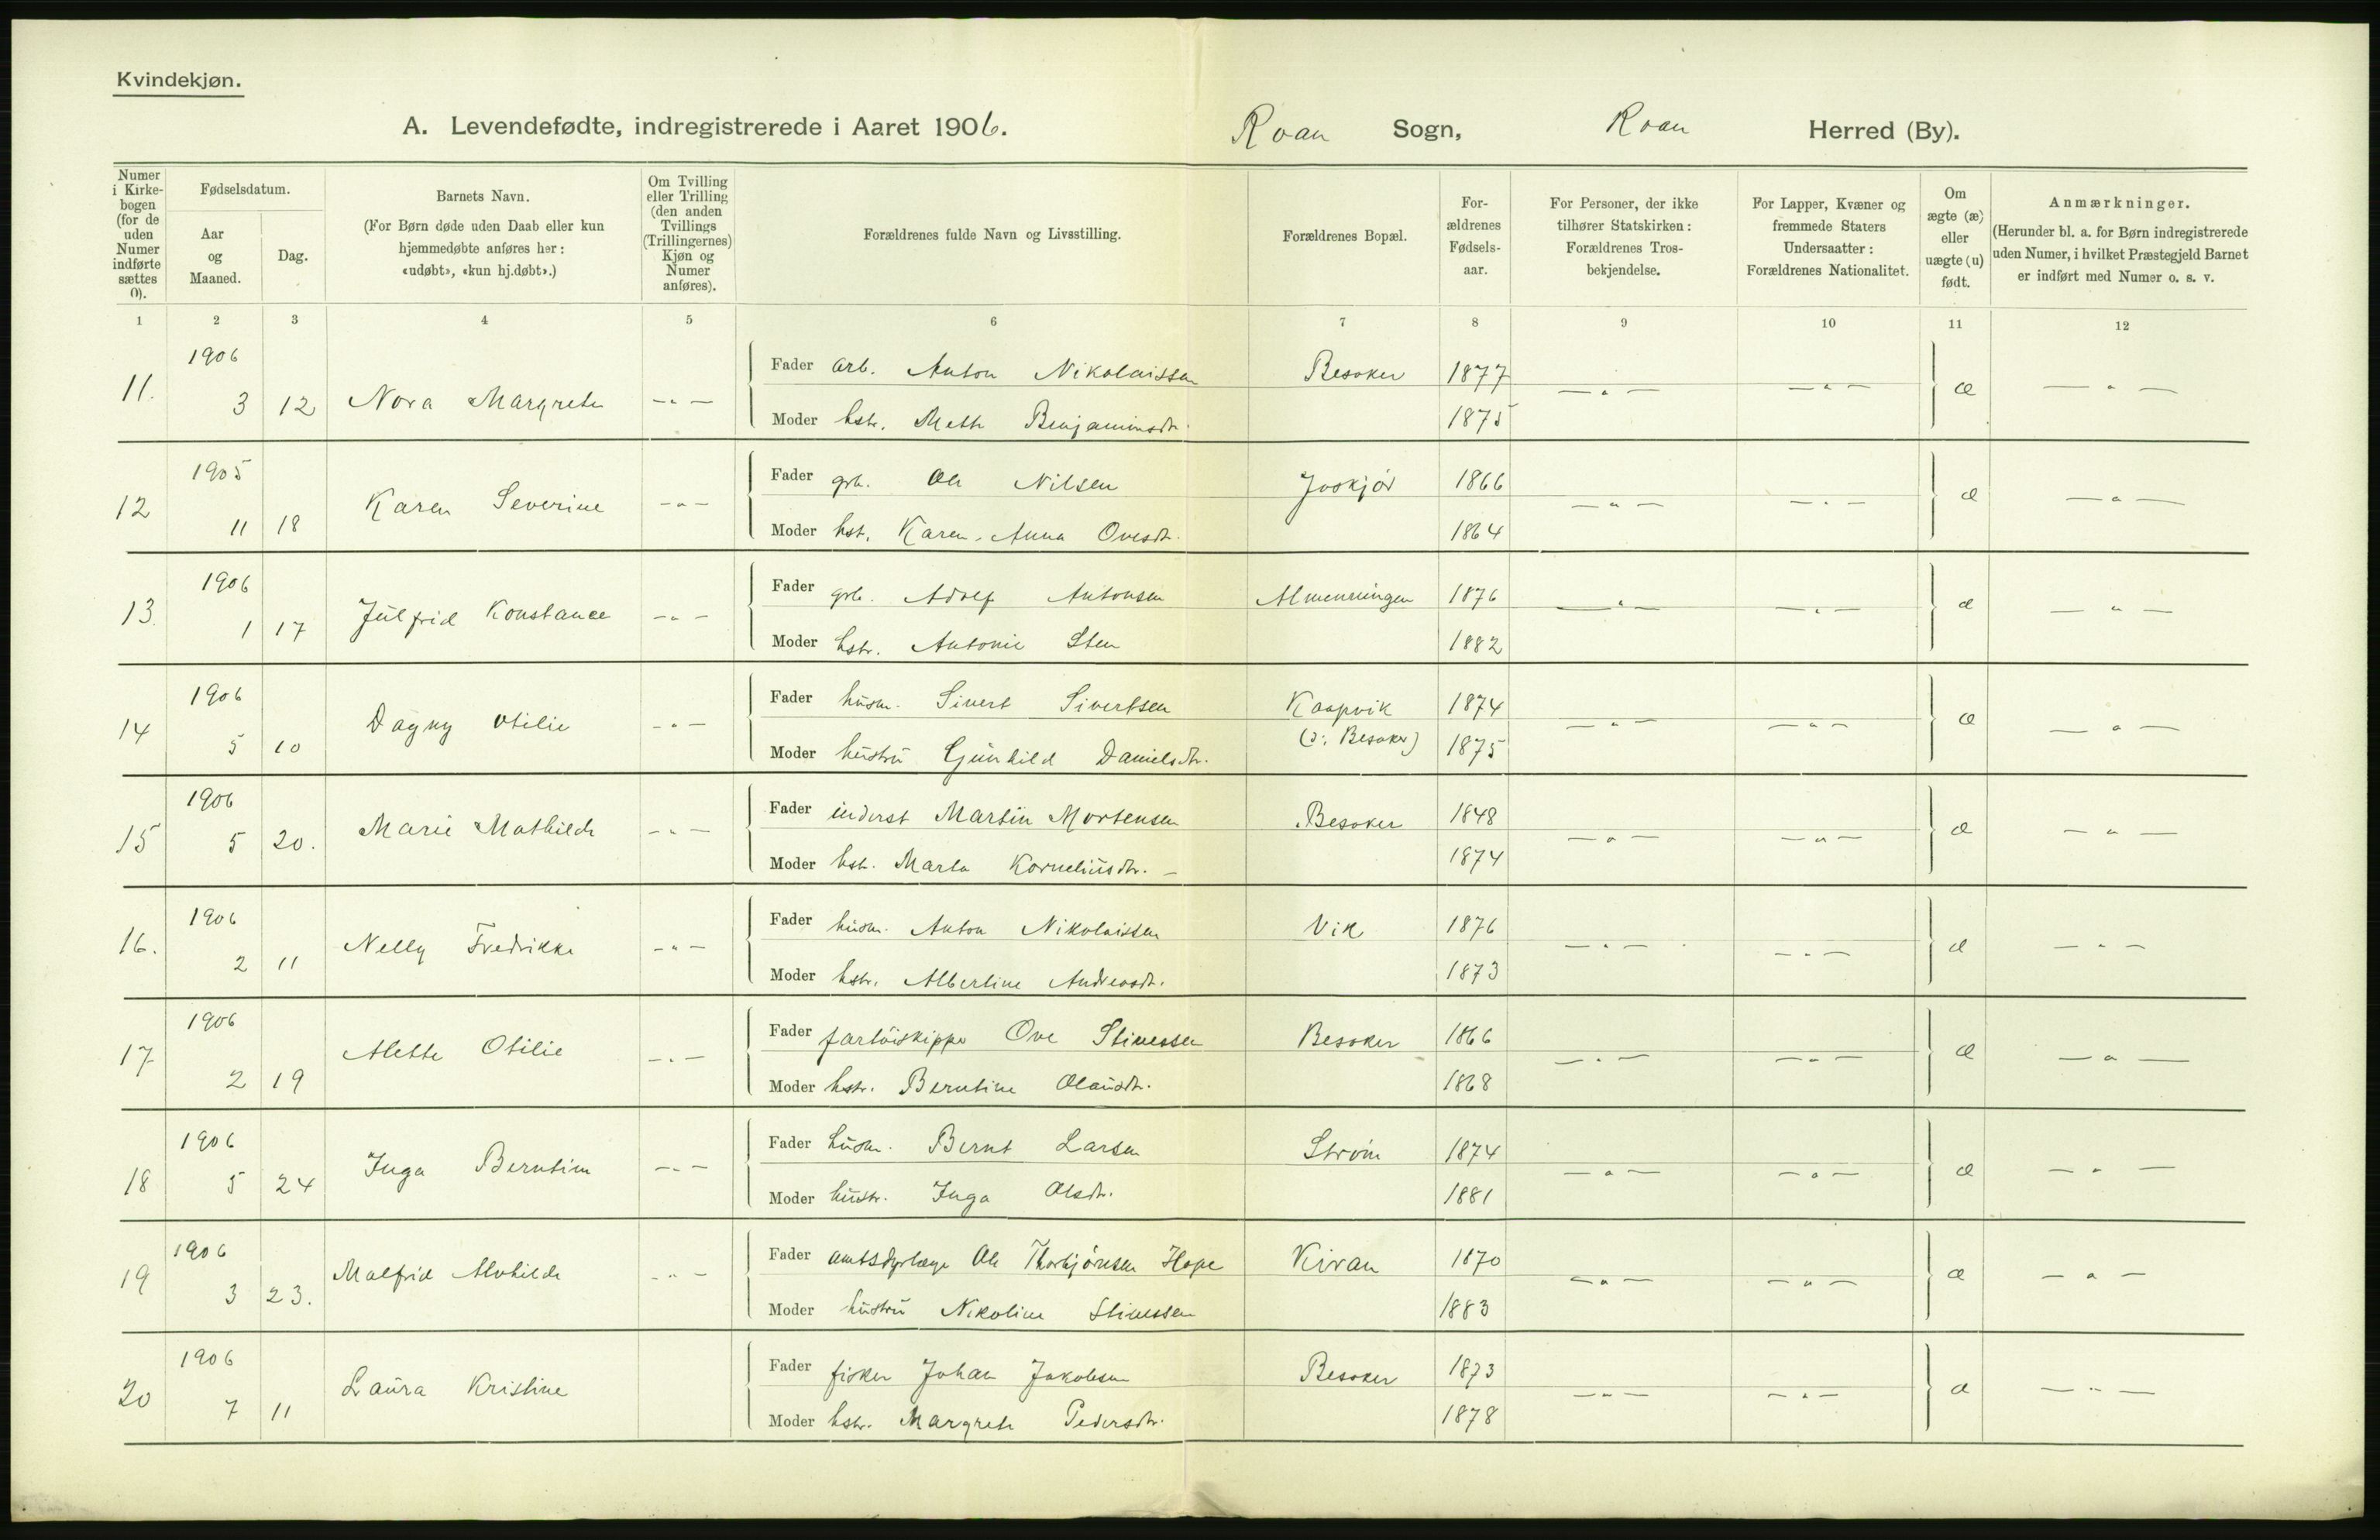 Kvindekjøn.
A. Levendefødte, indregistrerede i Aaret 1906. Roan Sogn, Roan Herred (By).
Numer i Kirke-bogen (for de uden Numer indførte sættes 0).
Fødselsdatum.
Aar og Maaned.
Dag.
Barnets Navn.
(For Børn døde uden Daab eller kun
hjemmedøbte anføres her:
«udøbt», «kun hj.døbt».)
Om Tvilling eller Trilling (den anden Tvillings (Trillingernes) Kjøn og Numer anføres).
Forældrenes fulde Navn og Livsstilling.
Forældrenes Bopæl.
For-ældrenes Fødsels-aar.
For Personer, der ikke
tilhører Statskirken:
Forældrenes Tros-
bekjendelse.
For Lapper, Kvæner og
fremmede Staters
Undersaatter:
Forældrenes Nationalitet.
Om ægte (æ) eller uægte (u) født.
Anmærkninger.
(Herunder bl. a. for Børn indregistrerede
uden Numer, i hvilket Præstegjeld Barnet
er indført med Numer o. s. v.
1 2 3 4 5 6 7 8 9 10 11 12
11. 1906 3 12 Nora Margrete — " — Fader arb. Anton Nikolaissen Besaker 1877 — " — — " — æ — " —
Moder hstr. Mette Benjaminsdtr. 1875
12 1905 11 18 Karen Severine — " — Fader grb. Ole Nilsen 1866 — " — — " — æ — " —
Moder hst. Karen Anna Ovesdtr. 1864
13. 1906 1 17 Julfrid Konstance — " — Fader grb. Adolf Antonsen Almenningen 1876 — " — — " — æ — " —
Moder hstr. Antonie Sten 1882
14 1906 5 10 Dagny Otilie — " — Fader husm. Sivert Sivertsen 1874 — " — — " — æ — " —
(ɔ: Besaker)
Moder hustru Gunhild Danielsdtr. 1875
15 1906 5 20. Marie Mathilde — " — Fader inderst Martin Mortensen Besaker 1848 — " — — " — æ — " —
Moder hst. Marta Korneliusdtr. — 1874
16. 1906 2 11 Nelly Fredrikke — " — Fader husm. Anton Nikolaissen Vik 1876 — " — — " — æ — " —
Moder hstr. Albertine Andreasdtr. 1873
17 1906 2 19 Alette Otilie — " — Fader fartöiskipper Ove Stinessen Besaker 1866 — " — — " — æ — " —
Moder hstr. Berntine Olausdtr. 1868
18 1906 5 24 Inga Berntine — " — Fader husm. Bernt Larsen Strøm 1874 — " — — " — æ — " —
Moder hustr. Inga Olsdtr. 1881
19 1906 3 23. Malfrid Alvhilde — " — Fader amtsdyrlæge Ole Thorbjörnsen Hope Kiran 1870 — " — — " — æ — " —
Moder hustru Nikoline Stinessen 1883
20 1906 7 11 Laura Kristine Fader fisker Johan Jakobsen Besaker 1873 — " — — " — æ — " —
Moder hstr. Margrete Pedersdtr. 1878